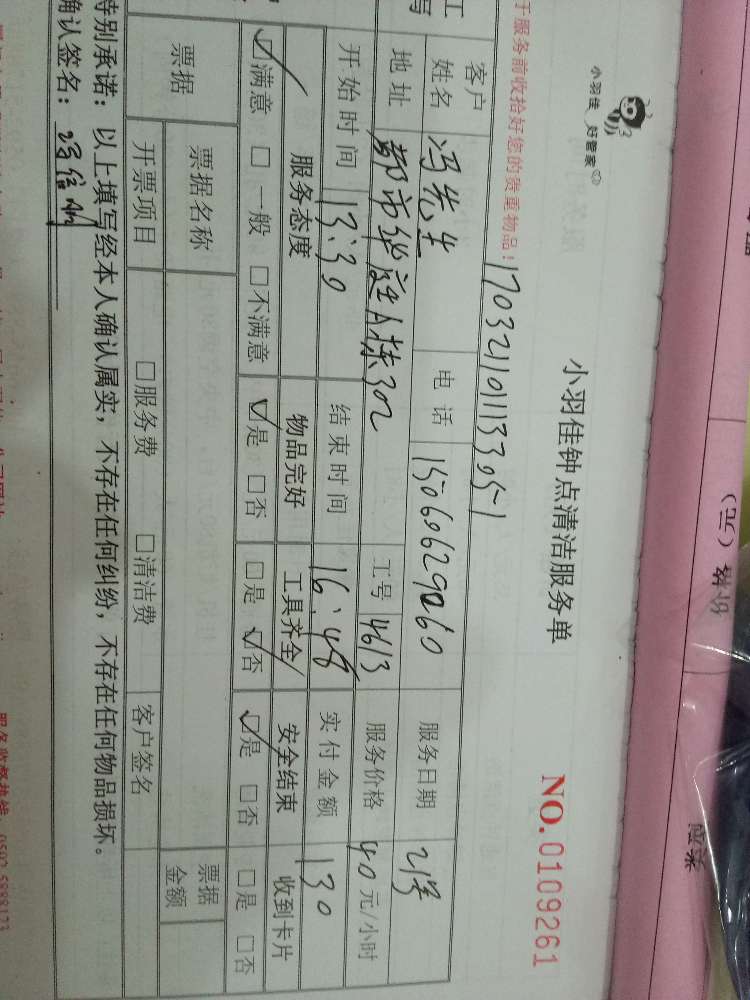 小羽佳 好管家
小羽佳钟点清洁服务单
NO.0109261
于服务前收拾好您的贵重物品！ 170321101113305-1
客户姓名 冯先生 电话 15060629260 服务日期 21号
地址 都市华庭A栋302 工号 4613 服务价格 40 元/小时
开始时间 13:30 结束时间 16:48 实付金额 130
服务态度 物品完好 工具齐全 安全结束 收到卡片
☑满意 □一般 □不满意 ☑是 □否 □是 ☑否 ☑是 □否 □是 □否
票据 票据名称 票据金额
开票项目 □服务费 □清洁费 客户签名
特别承诺：以上填写经本人确认属实，不存在任何纠纷，不存在任何物品损坏。
确认签名：